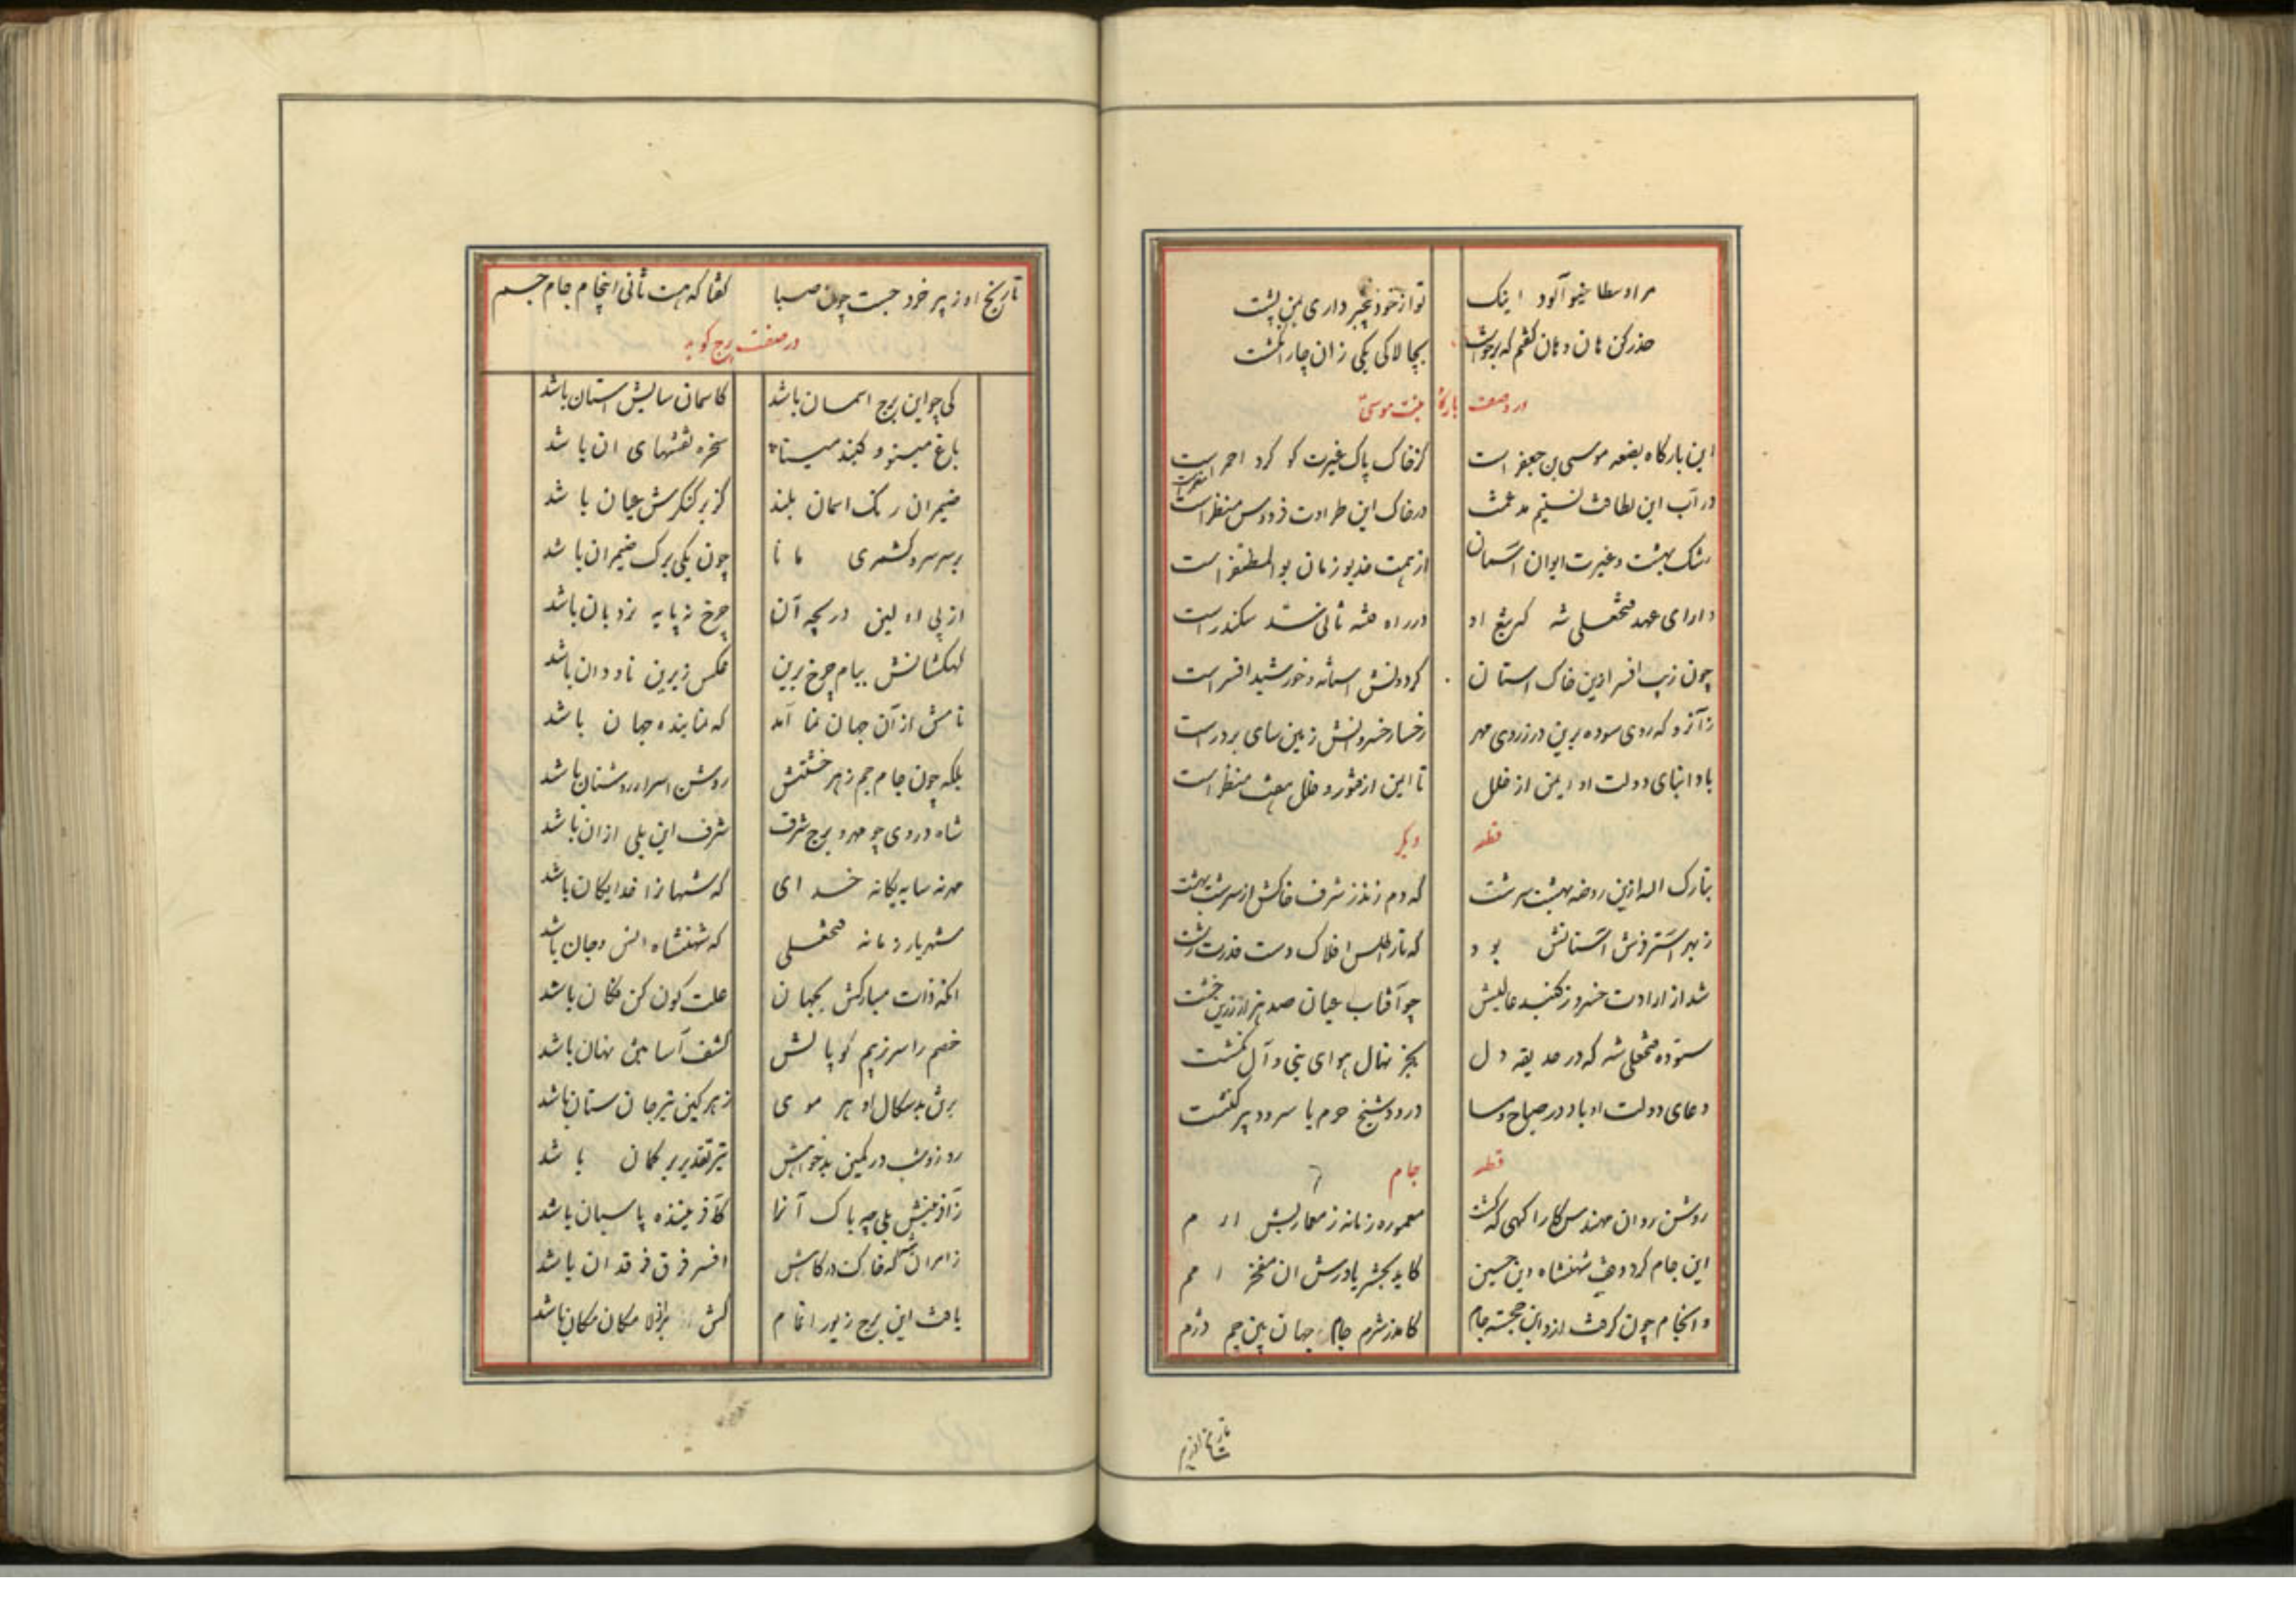 مر او سطا خیو آلود اینک تو از خود بچبر داری بن پشت
حذر کن هان و هان کفتم که بر خواست بچالاکی یکی زان چار انکشت
در وصف بارکاه بنت موسی
این بارکاه بضعه موسی بن جعفر است کز خاک پاک غیرت کو کرد احمر است
در آب این لطافت تسنیم مدغمت در خاک این طراوت فردوس مضمر است
رشک بهشت و غیرت ایوان آسمان از همت خدیو زمان بوالمظفر است
دارای عهد فتحعلی شه که تیغ او در راه فتنه ثانی سد سکندر است
چون زیب افسر او این خاک استان کردونش استانه و خورشید افسر است
زآنرو که روی سوده برین در ز روی مهر رخسار خسروانش زمین سای بر در است
بادا بنای دولت او ایمن از خلل تا ایمن از فتور و خلل هفت منظر است
قطعه دیکر
تبارک اله ازین روضه بهشت سرشت که دم زند ز شرف خاکش از سرشت بهشت
ز بهر استر فرش آستانش بود که تار اطلس افلاک دست قدرت رشت
شد از ارادت خسرو ز کنبد عالیش چو آفتاب عیان صد هزار زرین خشت
ستوده فتحعلی شه که در حدیقه دل بجز نهال هوای نبی و آل نکشت
دعای دولت او باد در صباح و مسا درود شیخ حرم با سرود پیر کنشت
قطعه جام
روشن روان مهندس کار آکهی که کشت معموره زمانه ز معماریش ارم
این جام کرد وقف شهنشاه دین حسین کاید بحشر یاورش ان مفخر امم
و انجام چون کرفت ازو این خجسته جام کامد ز شرم جام جهان بین جم دژم
تاریخ او ز پیر خرد جست چون صبا کفتا که هست ثانی این جام جام جم
در صفت برج کوید
کی چو این برج اسمان باشد کاسمان سایش استان باشد
باغ مینو و کنبد مینا سخره نقشهای ان باشد
ضیمران رنک اسمان بلند کز بر کنکرش عیان باشد
بر سر سرو کشمری مانا چون یکی برک ضیمران باشد
از پی اولین دریچه آن چرخ نه پایه نردبان باشد
کهکشانش ببام چرخ برین عکس زیرین ناودان باشد
نامش از آن جهان نما آمد که نماینده جهان باشد
بلکه چون جام جم ز هر خشتش روشن اسرار روشنان باشد
شاه در وی چو مهر و برج شرف شرف این بلی ازان باشد
مهر نه سایه یکانه خدای که شهانرا خدایکان باشد
شهریار زمانه فتحعلی که شهنشاه انس و جان باشد
انکه ذات مبارکش بجهان علت کون کن فکان باشد
خصم را سر ز بیم کوپالش کشف آسا به تن نهان باشد
بر تن بد سکال او هر موی زهر کین تیر جان ستان باشد
روز و شب در کمین بدخواهش تیر تقدیر بر کمان باشد
زآفرینش بلی چه باک آنرا کافریننده پاسبان باشد
ز امرانشه که خاک درکاهش افسر فرق فرقدان باشد
یافت این برج زیور اتمام کش بر از لامکان مکان باشد